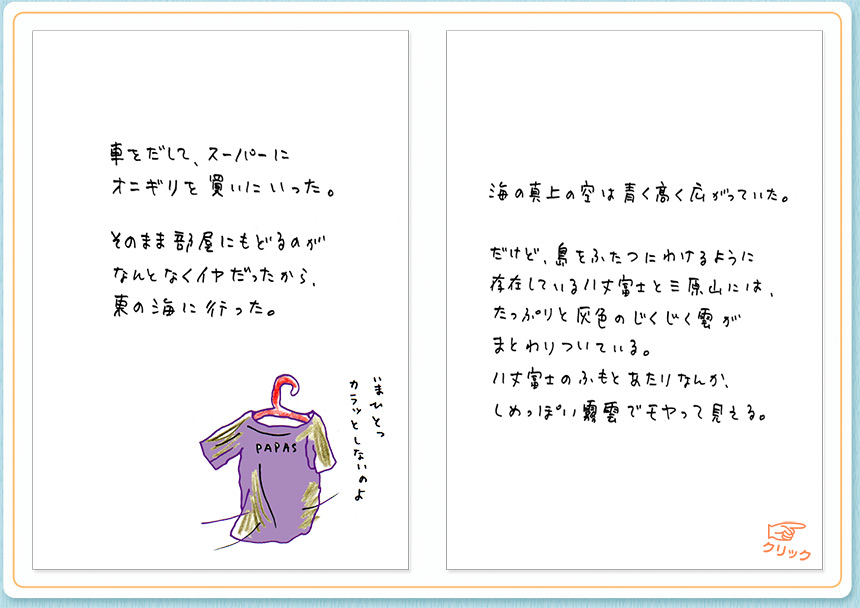 車をだして、スーパーに
オニギリを買いにいった。
そのまま部屋にもどるのが
なんとなくイヤだったから、
東の海に行った。
いまひとつ
カラッとしないのよ
PAPAS
海の真上の空は青く高く広がっていた。
だけど、島をふたつにわけるように
存在している八丈富士と三原山には、
たっぷりと灰色のじくじく雲が
まとわりついている。
八丈富士のふもとあたりなんか、
しめっぽい霧雲でモヤって見える。
クリック